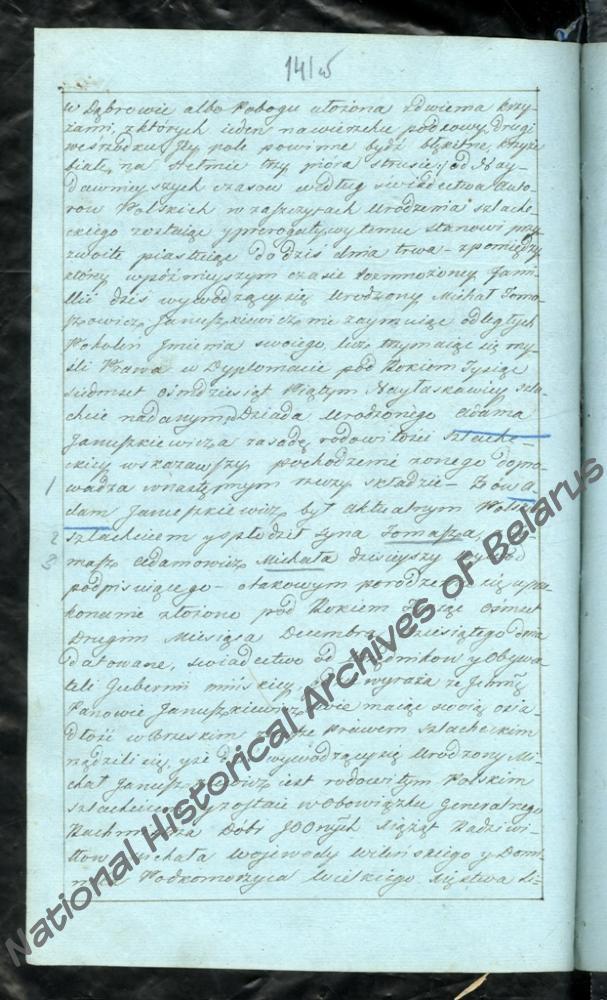 141 об
w Dąbrowie albo Pobogu ułożona z dwiema krzy-
żami, z których ieden na wierzchu podkowy, drugi
we szrodku Jey pole powinne bydź błękitne, krzyże
białe, na Hełmie trzy pióra strusie / od Nay-
dawnieyszych czasow według swiadectwa Auto-
row Polskich w zaszczytach Urodzenia szlache-
ckiego zostaiąc y prerogatywy temu stanowi przy-
zwoite piastuiąc do dziś dnia trwa - z pomiędzy
ktorey w poźnieyszym czasie rozmnożoney Fami-
llii dziś wywodzący się Urodzony Michał Toma-
szowicz Januszkiewicz nie zaymuiąc odległych
Pokoleń Jmienia swoiego, lecz trzymaiąc się my-
śli Prawa w Dyplomacie pod Rokiem Tysiąc
siedmset ośmdziesiąt Piątym Nayłaskawiey szla-
chcie nadanym, Dziada Urodzonego Adama
Januszkiewicza zasadę rodowitości szlache-
ckiey wskazawszy pochodzenie z onego dopro-
1 wadza w następnym rzeczy składzie - Ten A-
dam Januszkiewicz był aktualnym Polskim
2 szlachcicem y spłodził syna Tomasza,
3 masz Adamowicz Michała dzisieyszy wywod
podpisuiącego - o takowym porodzeniu się uprze-
konanie złożone pod Rokiem Tysiąc Ośmset
Drugim Miesiąca Decembra Dziesiątego dnia
datowane, swiadectwo od Urzędnikow y Obywa-
teli Gubernii mińskiey wyraża że Jchmć
Panowie Januszkiewiczowie maiąc swoią osia-
dłość w Brzeskim Prawem szlacheckim
rządzili się, y że dziś wywodzący się Urodzony Mi-
chał Januszkiewicz iest rodowitym Polskim
szlachcicem y zostaie w Obowiązku Generalnego
Rachmistrza Dobr JOOnych Xiążąt Radziwi-
łłow Michała Woiewody Wileńskiego y Domi-
nika Podkomorzyca Wielkiego Xięstwa Li-
National Historical Archives of Belarus